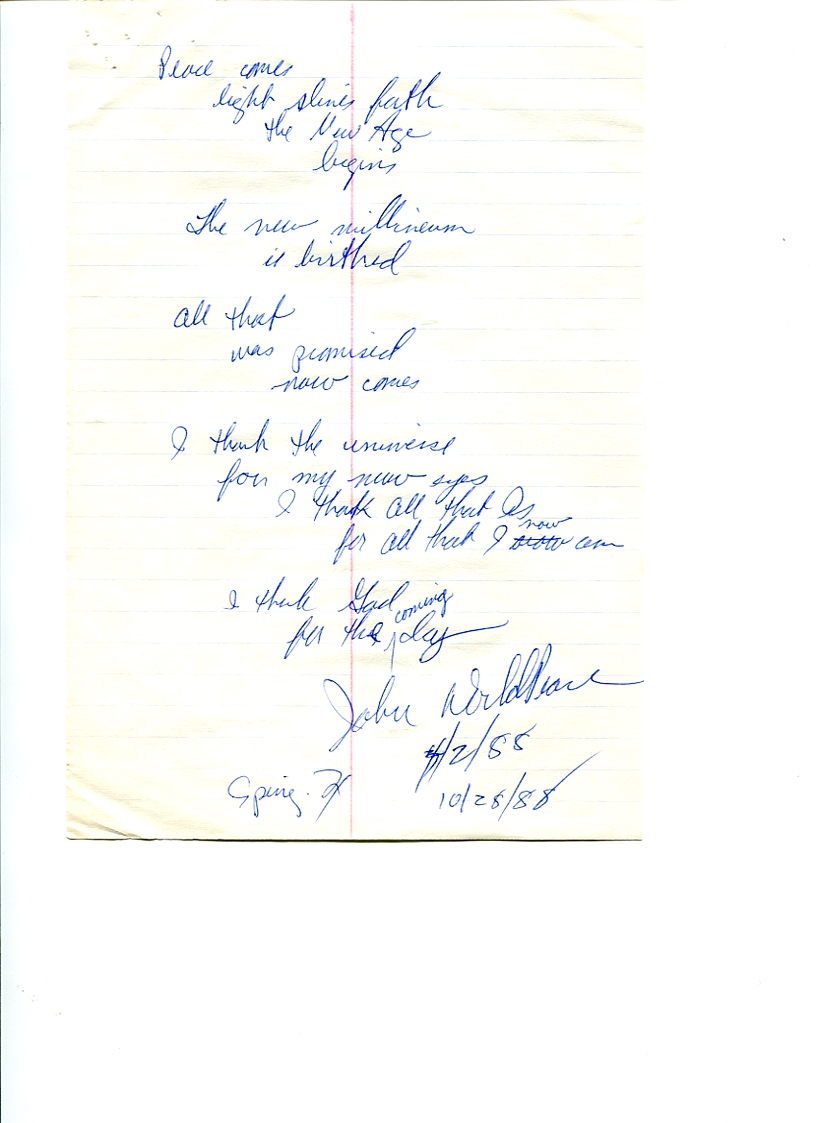 Peace comes
light shines forth
the New Age
begins
The new millineum
is birthed
all that
was promised
now comes
I thank the universe
for my new eyes
I thank all that Is
for all that I now am
I thank God
for the coming day
John WorldPeace
/2/88
Spring. TX
10/28/88